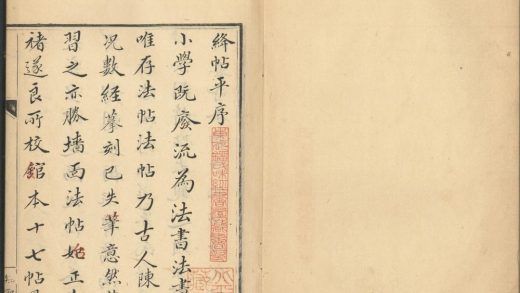 絳帖平序
小學既廢流為法書法書
唯存法帖法帖乃古人陳
況數經摹刻已失筆意然
習之亦勝墻面法帖始正
禇遂良所校館本十七帖